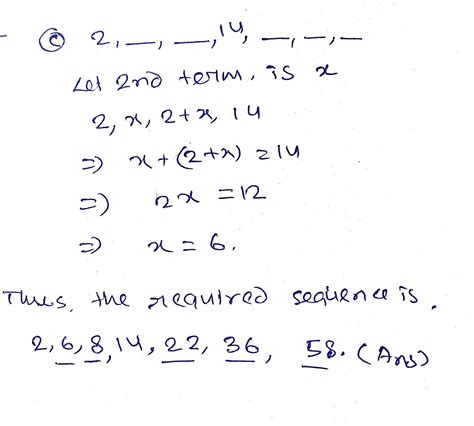 - ⓒ 2, __, __, 14, __, __, __
Let 2nd term, is x
2, x, 2+x, 14
=) x+(2+x) = 14
=) 2x = 12
=) x = 6.
Thus, the required sequence is.
2, 6, 8, 14, 22, 36, 58. (Ans)